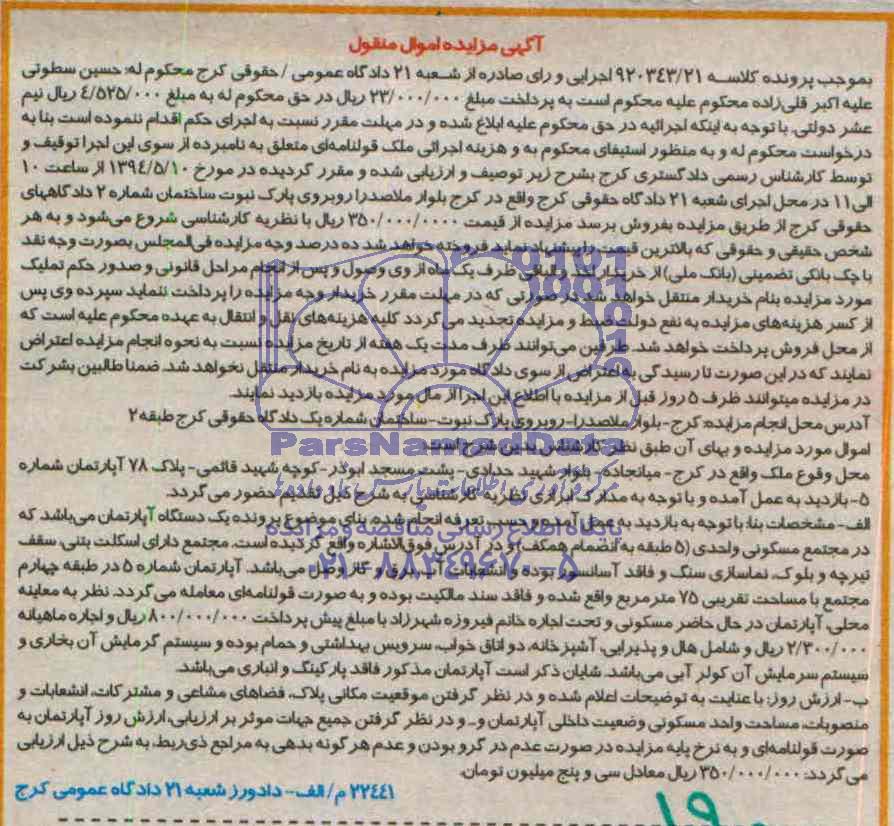 آگهی مزایده اموال منقول
بموجب پرونده کلاسه ۹۲۰۳۴۳/۲۱ اجرایی و رای صادره از شعبه ۲۱ دادگاه عمومی / حقوقی کرج محکوم له: حسین سطوتی
علیه اکبر قلی‌زاده محکوم علیه محکوم است به پرداخت مبلغ ۲۳/۰۰۰/۰۰۰ ریال در حق محکوم له به مبلغ ۴/۵۲۵/۰۰۰ ریال نیم
عشر دولتی. با توجه به اینکه اجرائیه در حق محکوم علیه ابلاغ شده و در مهلت مقرر نسبت به اجرای حکم اقدام ننموده است بنا به
درخواست محکوم له و به منظور استیفای محکوم به و هزینه اجرائی ملک قولنامه‌ای متعلق به نامبرده از سوی این اجرا توقیف و
توسط کارشناس رسمی دادگستری کرج بشرح زیر توصیف و ارزیابی شده و مقرر گردیده در مورخ ۱۳۹۴/۵/۱۰ از ساعت ۱۰
الی۱۱ در محل اجرای شعبه ۲۱ دادگاه حقوقی کرج واقع در کرج بلوار ملاصدرا روبروی پارک نبوت ساختمان شماره ۲ دادگاههای
حقوقی کرج از طریق مزایده بفروش برسد مزایده از قیمت ۳۵۰/۰۰۰/۰۰۰۰ ریال با نظریه کارشناسی شروع می‌شود و به هر
شخص حقیقی و حقوقی که بالاترین قیمت را پیشنهاد نماید فروخته خواهد شد ده درصد وجه مزایده فی‌المجلس بصورت وجه نقد
با چک بانکی تضمینی (بانک ملی) از خریدار اخذ و الباقی ظرف یک ماه از وی وصول و پس از انجام مراحل قانونی و صدور حکم تملیک
مورد مزایده بنام خریدار منتقل خواهد شد در صورتی که در مهلت مقرر خریدار وجه مزایده را پرداخت ننماید سپرده وی پس
از کسر هزینه‌های مزایده به نفع دولت ضبط و مزایده تجدید می گردد کلیه هزینه‌های نقل و انتقال به عهده محکوم علیه است که
از محل فروش پرداخت خواهد شد. طرفین می‌توانند ظرف مدت یک هفته از تاریخ مزایده نسبت به نحوه انجام مزایده اعتراض
نمایند که در این صورت تا رسیدگی به اعتراض از سوی دادگاه مورد مزایده به نام خریدار منتقل نخواهد شد. ضمنا طالبین بشرکت
در مزایده میتوانند ظرف ۵ روز قبل از مزایده با اطلاع این اجرا از مال مورد مزایده بازدید نمایند.
آدرس محل انجام مزایده: کرج- بلوار ملاصدرا- روبروی پارک نبوت- ساختمان شماره یک دادگاه حقوقی کرج طبقه ۲
اموال مورد مزایده و بهای آن طبق نظر کارشناس بدین شرح است.
محل وقوع ملک واقع در کرج - میانجاده- بلوار شهید حدادی- پشت مسجد ابوذر- کوچه شهید قائمی- پلاک ۷۸ آپارتمان شماره
۵- بازدید به عمل آمده و با توجه به مدارک ابرازی نظریه کارشناسی به شرح ذیل تقدیم حضور می گردد.
الف- مشخصات بنا: با توجه به بازدید به عمل آمده و حسب تعرفه انجام شده، بنای موضوع پرونده یک دستگاه آپارتمان می‌باشد که
در مجتمع مسکونی واحدی (۵ طبقه به انضمام همکف) و در آدرس فوق‌الاشاره واقع گردیده است. مجتمع دارای اسکلت بتنی، سقف
تیرچه و بلوک، نماسازی سنگ و فاقد آسانسور بوده و انشعابات آب، برق و گاز وصل می‌باشد. آپارتمان شماره ۵ در طبقه چهارم
مجتمع با مساحت تقریبی ۷۵ مترمربع واقع شده و فاقد سند مالکیت بوده و به صورت قولنامه‌ای معامله می گردد. نظر به معاینه
محلی، آپارتمان در حال حاضر مسکونی و تحت اجاره خانم فیروزه شهرزاد با مبلغ پیش پرداخت ۸۰۰/۰۰۰/۰۰۰ ریال و اجاره ماهیانه
۲/۳۰۰/۰۰۰ ریال و شامل هال و پذیرایی، آشپزخانه، دو اتاق خواب، سرویس بهداشتی و حمام بوده و سیستم گرمایش آن بخاری و
سیستم سرمایش آن کولر آبی می‌باشد. شایان ذکر است آپارتمان مذکور فاقد پارکینگ و انباری می‌باشد.
ب- ارزش روز: با عنایت به توضیحات اعلام شده و در نظر گرفتن موقعیت مکانی پلاک، فضاهای مشاعی و مشترکات، انشعابات و
منصوبات، مساحت واحد مسکونی وضعیت داخلی آپارتمان و... و در نظر گرفتن جمیع جهات موثر بر ارزیابی، ارزش روز آپارتمان به
صورت قولنامه‌ای و به نرخ پایه مزایده در صورت عدم در گرو بودن و عدم هر گونه بدهی به مراجع ذی‌ربط، به شرح ذیل ارزیابی
می گردد: ۳۵۰/۰۰۰/۰۰۰ ریال معادل سی و پنج میلیون تومان.
۲۲۴۴۱ م/الف- دادورز شعبه ۲۱ دادگاه عمومی کرج
ParsNamadData
پایگاه اطلاع رسانی مناقصه و مزایده
۰۲۱-۸۸۳۴۹۶۷۰-۵